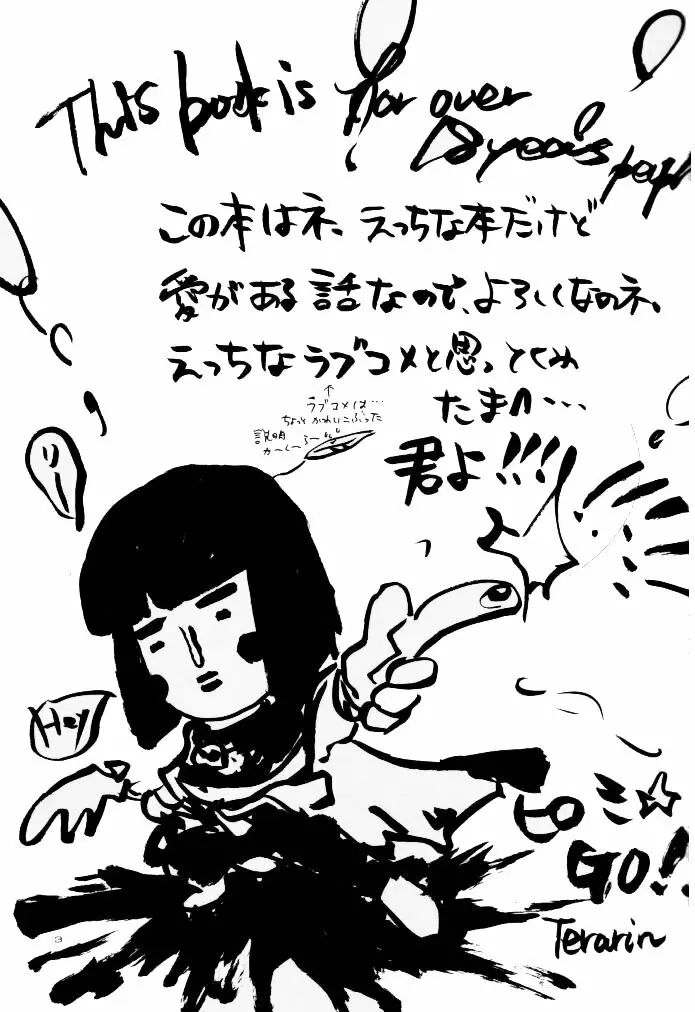 This book is for over
18 years people
この本はネ、えっちな本だけど
愛がある話なので、よろしくなのネ。
えっちなラブコメと思っとくみ
たまへ…
↑
ラブコメは…
ちょっとかわいこぶった
説明
か〜く〜る〜
君よ!!!
Hey
ピロミ☆
GO!!
Terarin
3